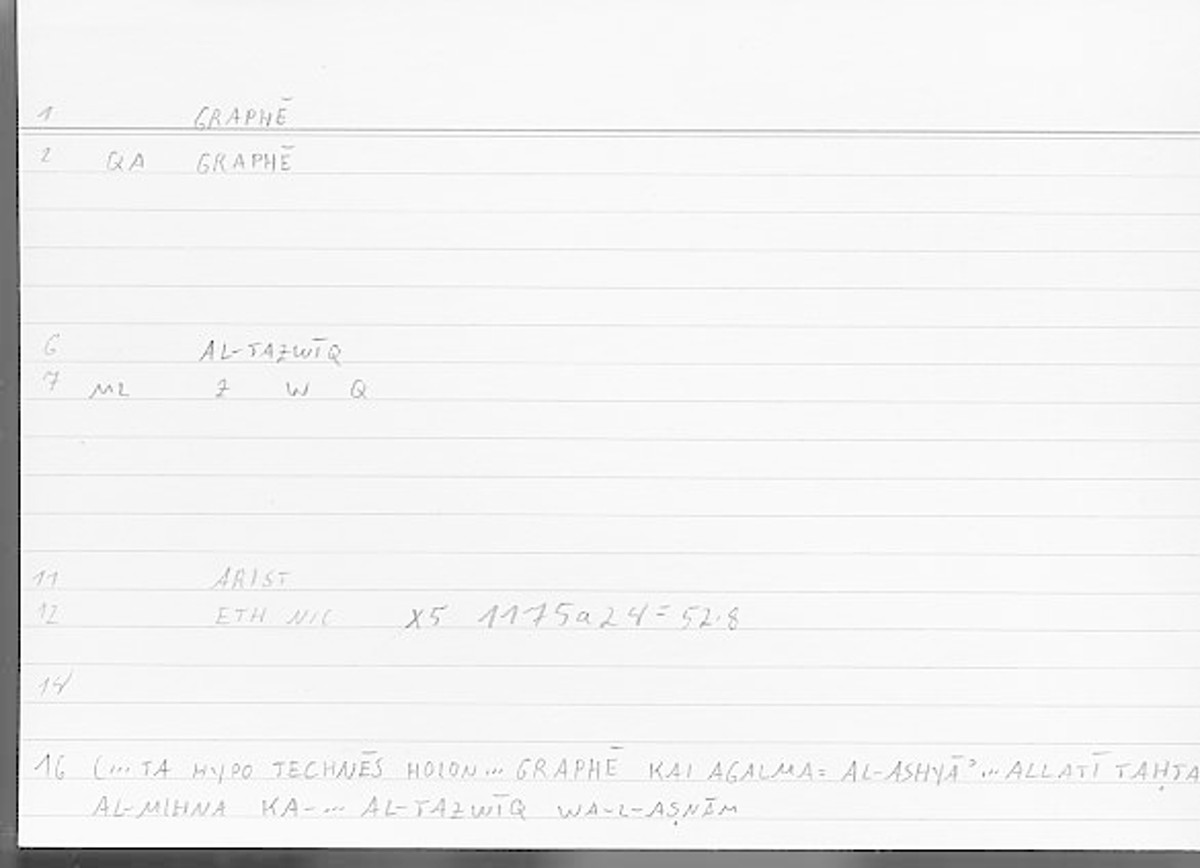 1 GRAPHĒ
2 QA GRAPHĒ
6 AL-TAZWĪQ
7 M2 Z W Q
11 ARIST
12 ETH NIC X5 1175a24=52.8
14
16 (... TA HYPO TECHNĒS HOION... GRAPHĒ KAI AGALMA= AL-ASHYĀʾ... ALLATĪ TAḤTA
AL-MIHNA KA-... AL-TAZWĪQ WA-L-AṢNĀM